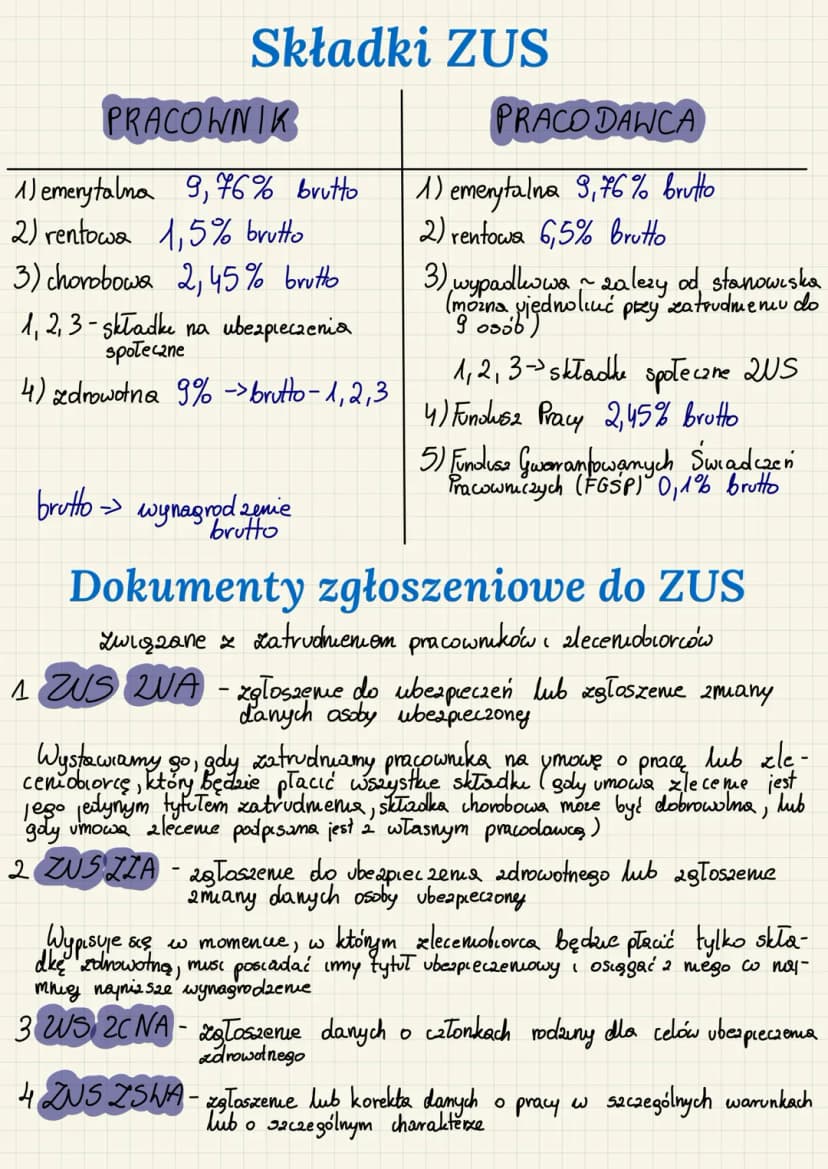 Składki ZUS
PRACOWNIK
1) emerytalna 9,76% brutto
2) rentowa 1,5% brutto
3) chorobowa 2,45% brutto
1, 2, 3 - składki na ubezpieczenia
społeczne
4) zdrowotna 9% -> brutto - 1, 2, 3
brutto => wynagrodzenie
brutto
PRACODAWCA
1) emerytalna 9,76% brutto
2) rentowa 6,5% brutto
3) wypadkowa ~ zależy od stanowiska
(można ujednolicić przy zatrudnieniu do
9 osób)
1, 2, 3 -> składki społeczne ZUS
4) Fundusz Pracy 2,45% brutto
5) Fundusz Gwarantowanych Świadczeń
Pracowniczych (FGŚP) 0,1% brutto
Dokumenty zgłoszeniowe do ZUS
związane z zatrudnieniem pracowników i zleceniobiorców
1 ZUS ZUA - zgłoszenie do ubezpieczeń lub zgłoszenie zmiany
danych osoby ubezpieczonej
Wystawiamy go, gdy zatrudniamy pracownika na umowę o pracę lub zle-
ceniobiorcę, który będzie płacić wszystkie składki (gdy umowa zlecenie jest
jego jedynym tytułem zatrudnienia, składka chorobowa może być dobrowolna, lub
gdy umowa zlecenie podpisana jest z własnym pracodawcą)
2 ZUS ZZA - zgłoszenie do ubezpieczenia zdrowotnego lub zgłoszenie
zmiany danych osoby ubezpieczonej
Wypisuje się w momencie, w którym zleceniobiorca będzie płacić tylko skła-
dkę zdrowotną, musi posiadać inny tytuł ubezpieczeniowy i osiągać z niego co naj-
mniej najniższe wynagrodzenie
3 ZUS ZCNA - zgłoszenie danych o członkach rodziny dla celów ubezpieczenia
zdrowotnego
4 ZUS ZSWA - zgłoszenie lub korekta danych o pracy w szczególnych warunkach
lub o szczególnym charakterze